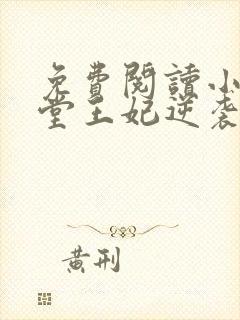 免費閱讀小
堂王妃逆袭
黃刑